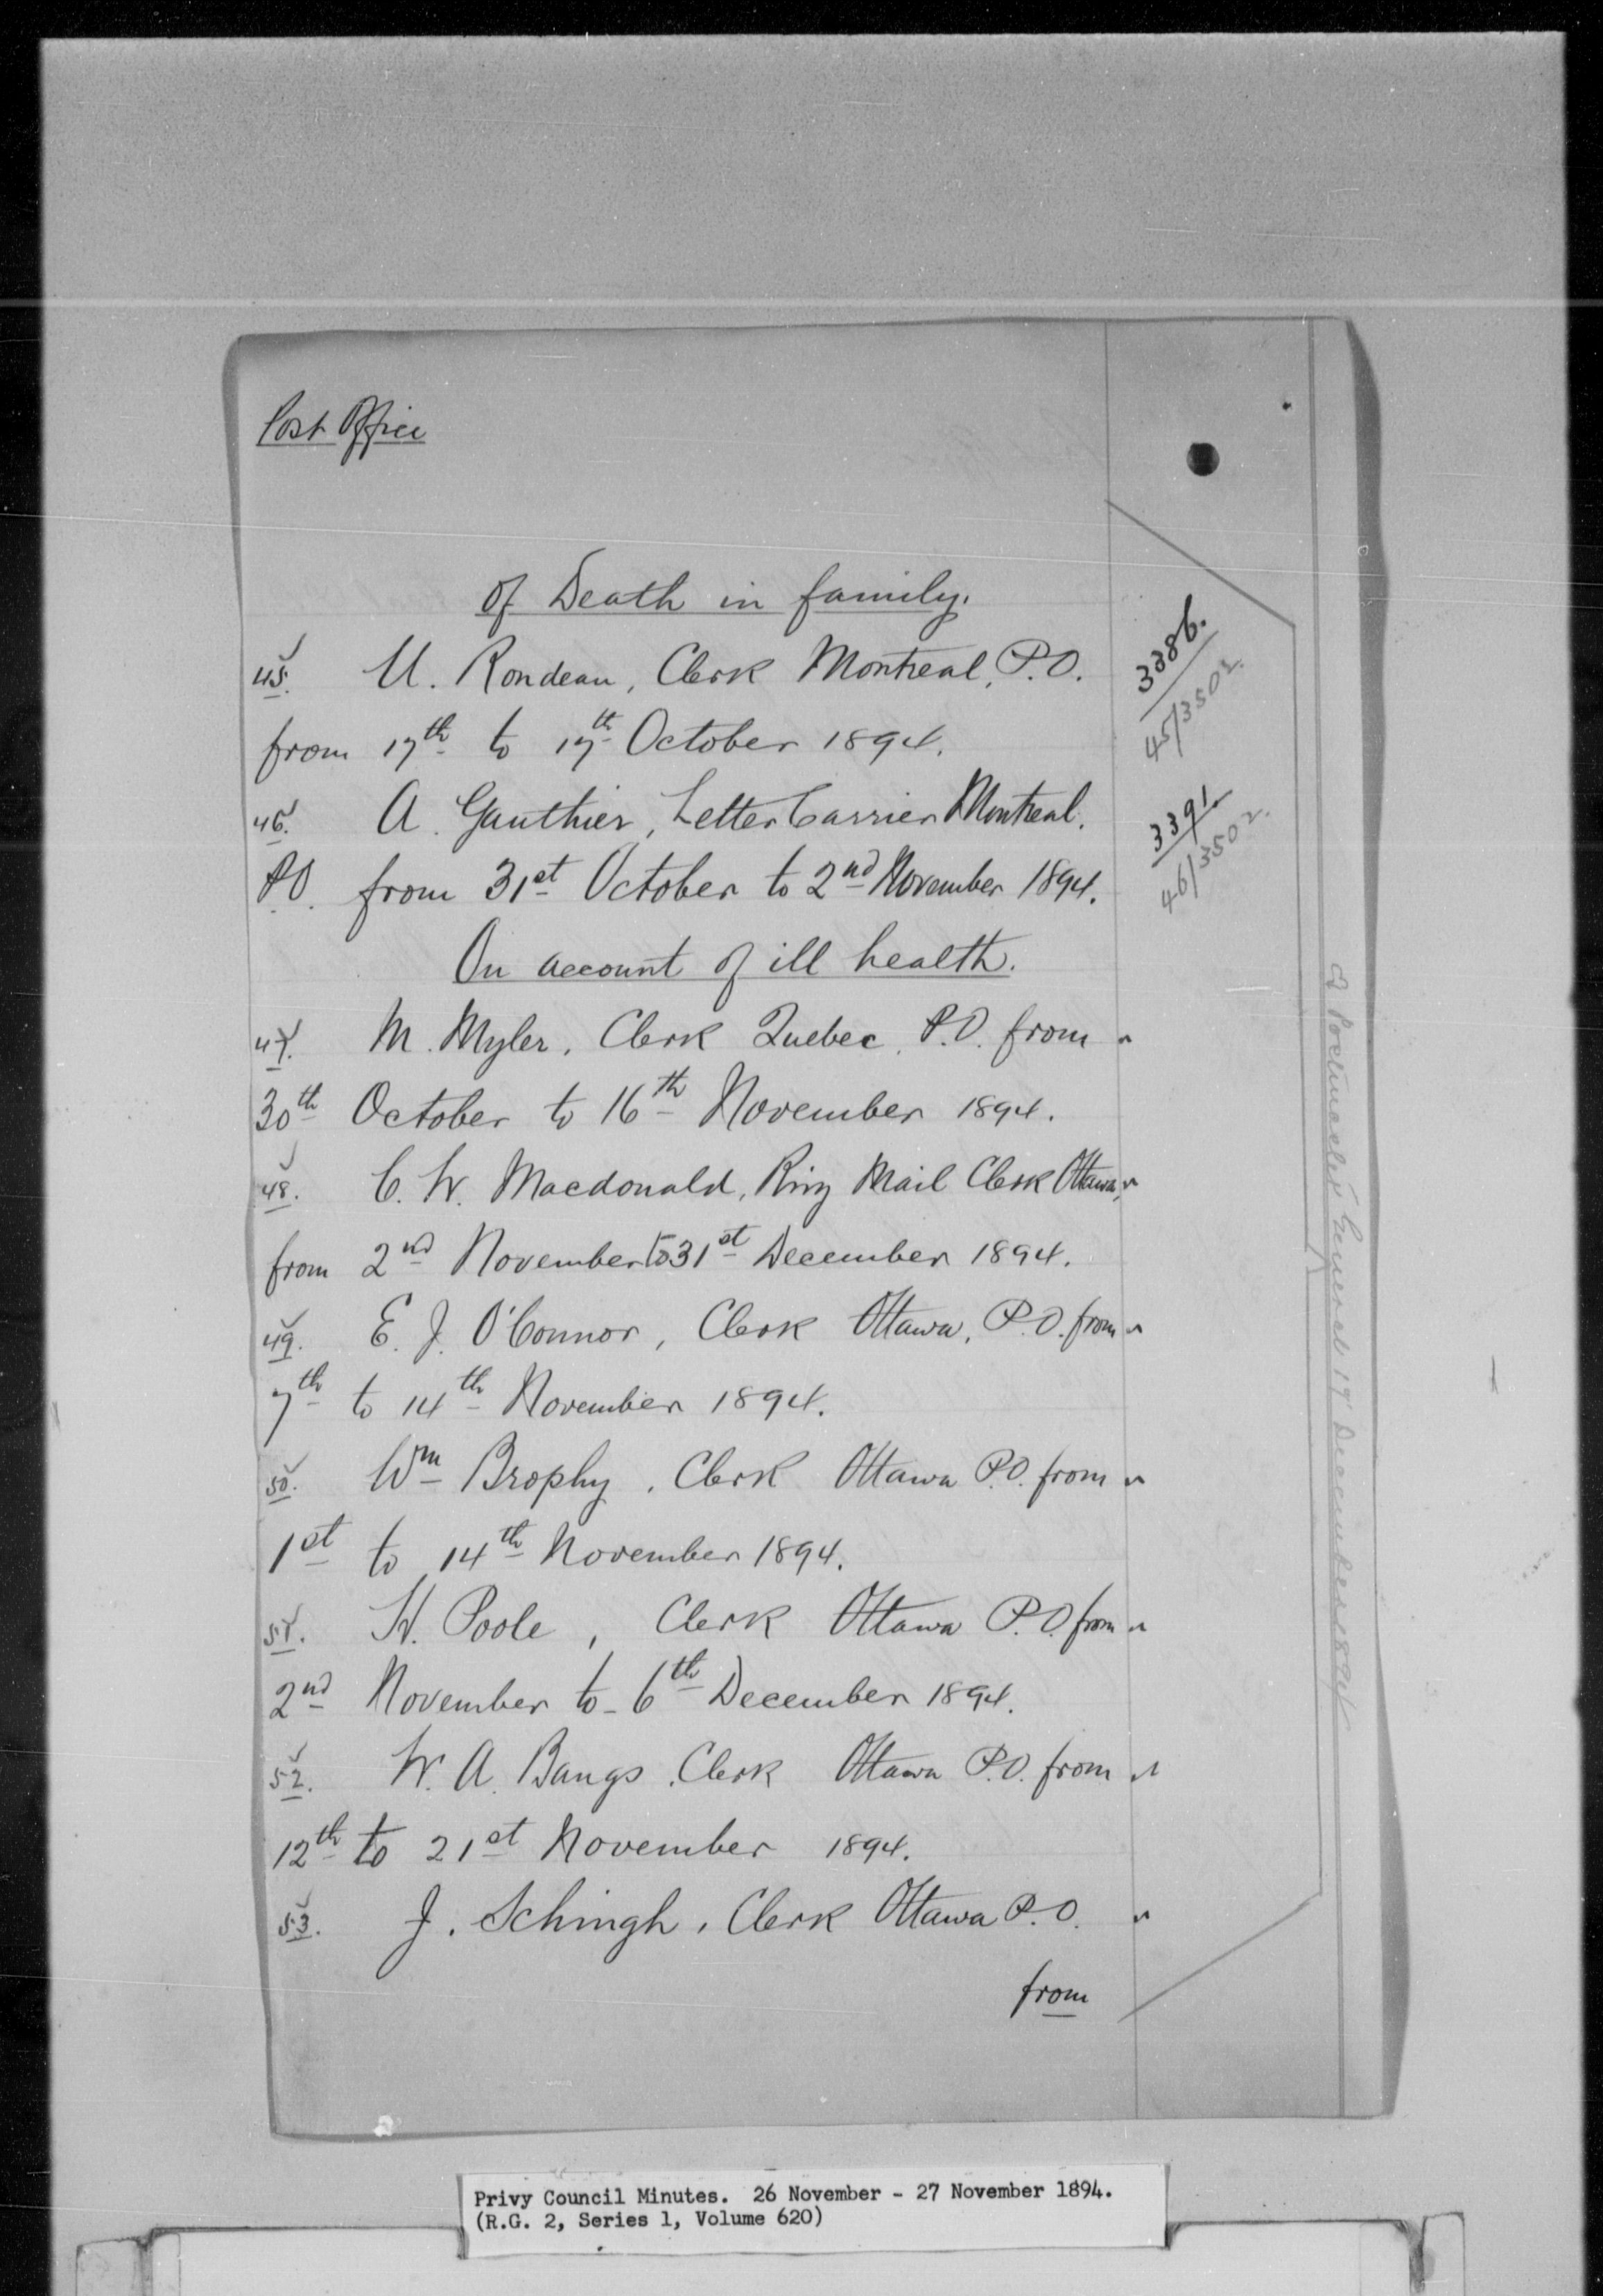 Post Office
of Death in family.
45. U. Rondeau, Clerk Montreal, P.O.
from 17th to 17th October 1894.
46. A. Gauthier, Letter Carrier Montreal.
P.O. from 31st October to 2nd November 1894.
On account of ill health.
47. M. Myler, Clerk Quebec, P.O. from "
30th October to 16th November 1894.
48. C. W. Macdonald, Rwy Mail Clerk Ottawa, "
from 2nd November to 31st December 1894.
49. E. J. O'Connor, Clerk Ottawa, P.O. from "
7th to 14th November 1894.
50. Wm Brophy, Clerk Ottawa P.O. from "
1st to 14th November 1894.
51. H. Poole, Clerk Ottawa P.O. from "
2nd November to 6th December 1894.
52. W. A. Bangs, Clerk Ottawa P.O. from "
12th to 21st November 1894.
53. J. Schingh, Clerk Ottawa P.O. "
from
3386.
45/3502.
3391.
46/3502.
Postmaster General 17 December 1894
Privy Council Minutes. 26 November - 27 November 1894.
(R.G. 2, Series 1, Volume 620)